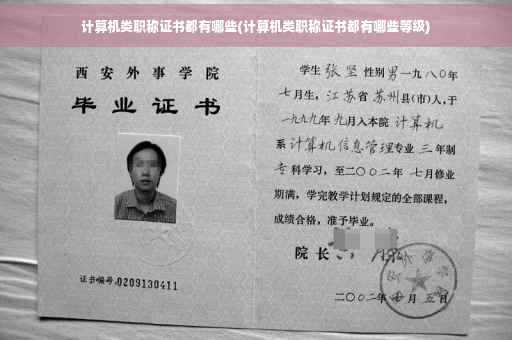 计算机类职称证书都有哪些(计算机类职称证书都有哪些等级)
西安外事学院
毕业证书
证书编号:0209130411
学生 张坚 性别 男 一九八〇年
七月生，江苏省 苏州县(市)人,于
一九九九年 九月入本院 计算机
系 计算机信息管理专业 三 年制
专科学习，至二〇〇二年 七月修业
期满，学完教学计划规定的全部课程，
成绩合格，准予毕业。
院长
二〇〇二年 月 五日